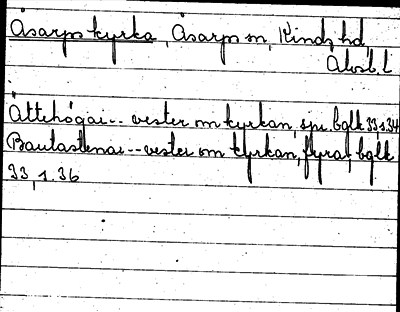 Åsarps kyrka, Åsarps sn, Kinds hd,
Älvsb. l.
Ättehögar -- vester om kyrkan, spr. bglk 33, s. 34
Bautastenar -- vester om kyrkan, fyra, bglk
33, s. 36